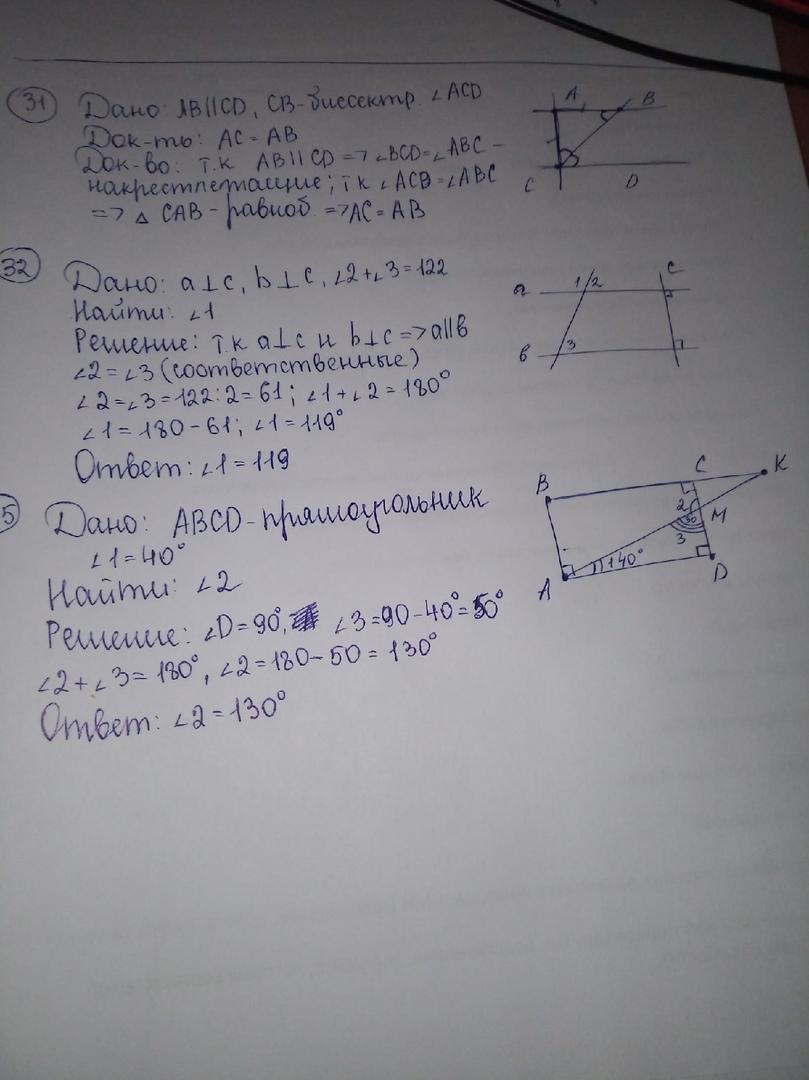 31
Дано: AB||CD, CB-биссектр. ∠ACD
Док-ть: AC = AB
Док-во: т.к AB||CD => ∠BCD=∠ABC -
накрестлежащие; т.к ∠ACB=∠ABC
=> △ CAB - равноб => AC = AB
A B
C D
32
Дано: a⊥c, b⊥c, ∠2+∠3=122
Найти: ∠1
Решение: т.к a⊥c и b⊥c => a||b
∠2=∠3 (соответственные)
∠2=∠3=122:2=61; ∠1+∠2=180°
∠1=180-61; ∠1=119°
Ответ: ∠1=119
c
a 1 2
b 3
5
Дано: ABCD-прямоугольник
∠1=40°
Найти: ∠2
Решение: ∠D=90°, ∠3=90-40°=50°
∠2+∠3=180°, ∠2=180-50=130°
Ответ: ∠2=130°
B C K
2 M
50
3
1 40°
A D